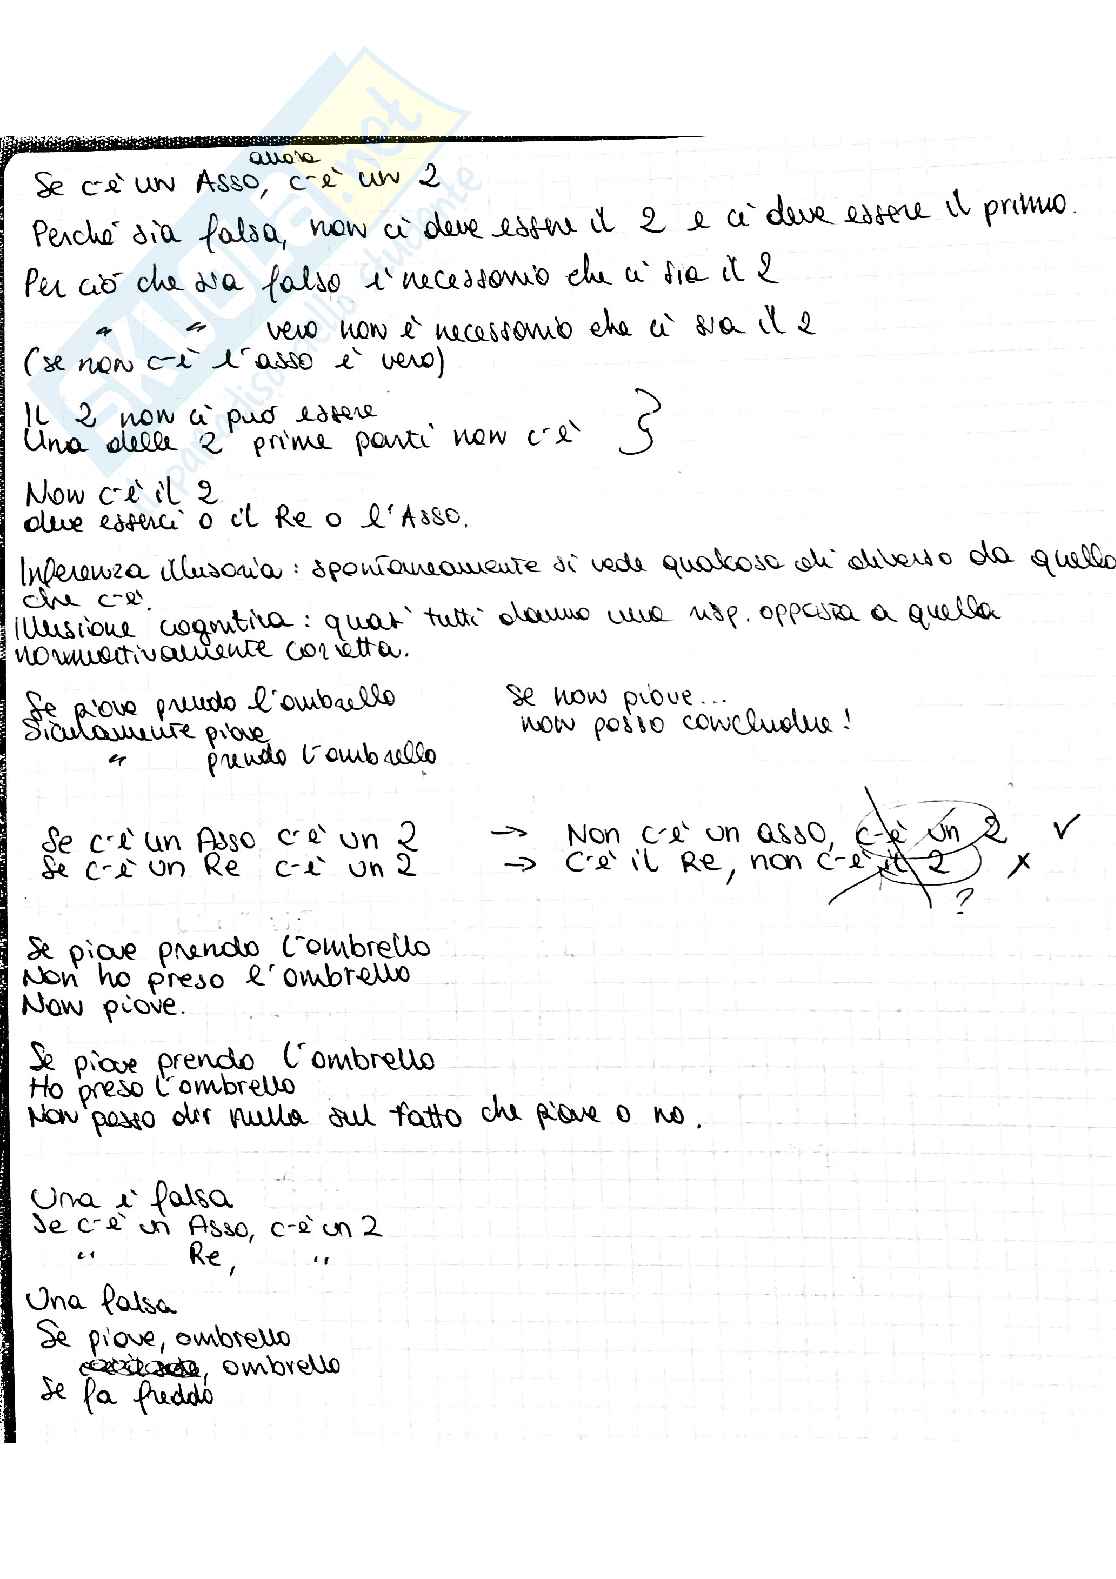 allora
Se c'è un Asso, c'è un 2
Perché sia falsa, non ci deve essere il 2 e ci deve essere il primo.
Per ciò che sia falso è necessario che ci sia il 2
" " vero non è necessario che ci sia il 2
(se non c'è l'asso è vero)
Il 2 non ci può essere
Una delle 2 prime parti non c'è
Non c'è il 2
deve esserci o il Re o l'Asso.
Inferenza illusoria: spontaneamente si vede qualcosa di diverso da quello
che c'è.
Illusione cognitiva: quasi tutti danno una risp. opposta a quella
normativamente corretta.
Se piove prendo l'ombrello
Sicuramente piove
" prendo l'ombrello
Se non piove...
non posso concludere!
Se c'è un Asso c'è un 2 → Non c'è un asso, c'è un 2 ✓
Se c'è un Re c'è un 2 → C'è il Re, non c'è il 2 x
?
Se piove prendo l'ombrello
Non ho preso l'ombrello
Non piove.
Se piove prendo l'ombrello
Ho preso l'ombrello
Non posso dir nulla sul fatto che piove o no.
Una è falsa
Se c'è un Asso, c'è un 2
" Re, "
Una falsa
Se piove, ombrello
, ombrello
Se fa freddo
SKUOLA.net
il paradiso dello studente